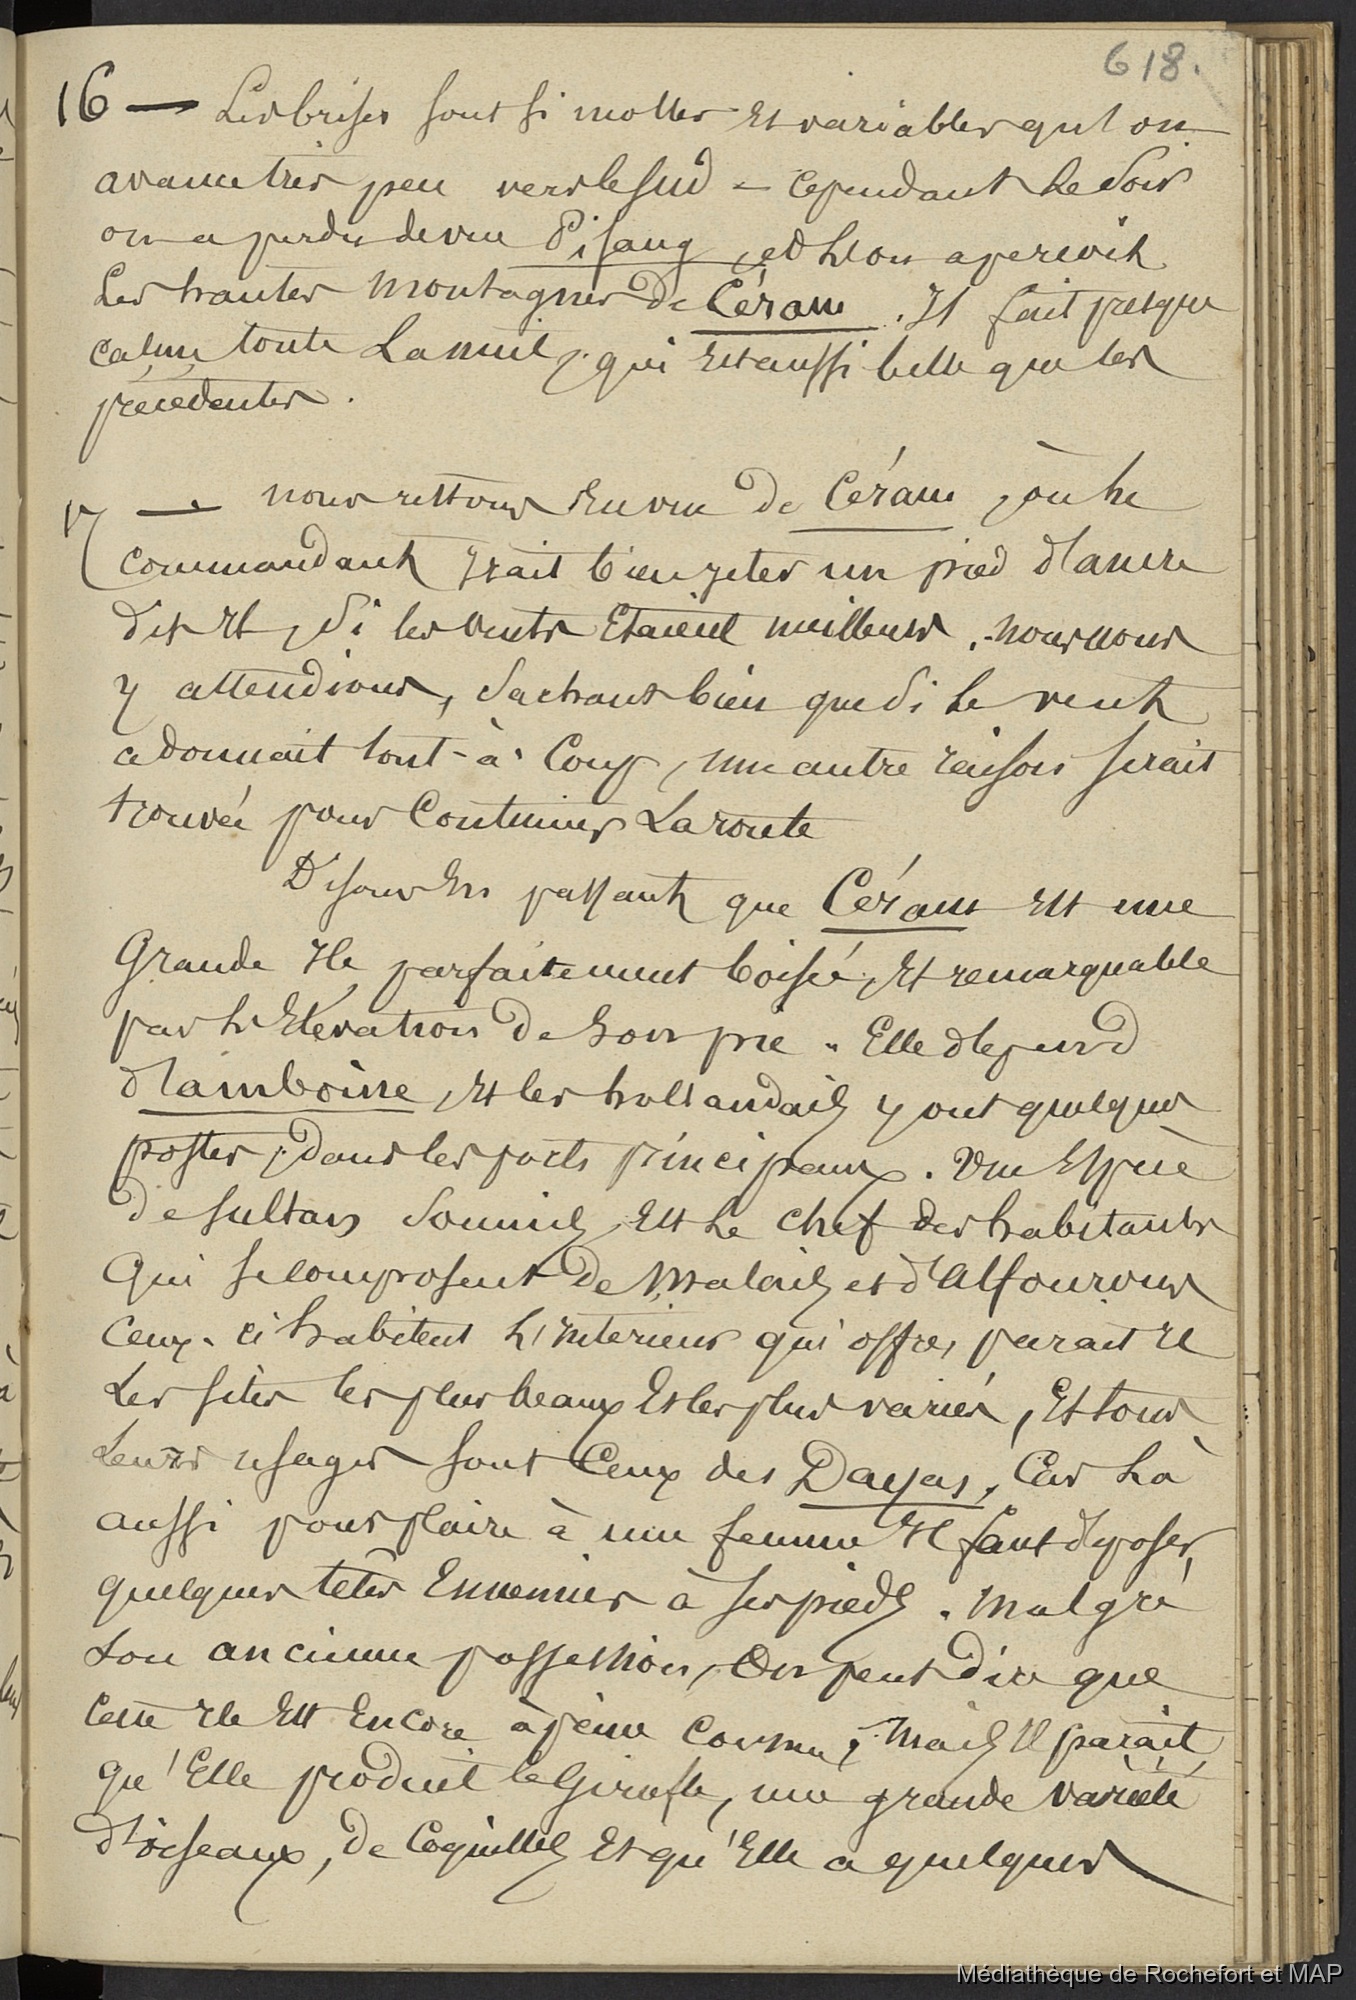 618.
16 — Les brises sont si molles et variables qu'l on
avance très peu vers le sud – cependant le soir
on a perdu de vue Pisang, et l'on aperçoit
les hautes montagnes de Céram. Il fait presque
calme toute la nuit, qui est aussi belle que les
précédentes.
17 — nous restons en vue de Céram, où le
commandant irait bien jeter un pied d'ancre
dit il, si les vents étaient meilleurs. nous nous
y attendions, sachant bien que si le vent
adonnait tout-à-coup, une autre raison serait
trouvée pour continuer la route
Disons en passant que Céram est une
Grande île, parfaitement boisée, et remarquable
par l'élévation de son pic. Elle dépend
d'amboine, et les hollandais y ont quelques
postes, dans les ports principaux. Une espèce
de sultan soumis, est le chef des habitants
qui se composent de Malais et d'Alfourous
ceux-ci habitent l'intérieur qui offre, parait il
les sites les plus beaux et les plus variés, et tous
leurs usages sont ceux des Dayas, car là
aussi pour plaire à une femme il faut déposer
quelques têtes ennemies à ses pieds. malgré
son ancienne possession, on peut dire que
cette île est encore à peine connue, mais il parait
qu'elle produit le Girofle, une grande variété
d'oiseaux, de coquilles et qu'elle a quelques
Médiathèque de Rochefort et MAP